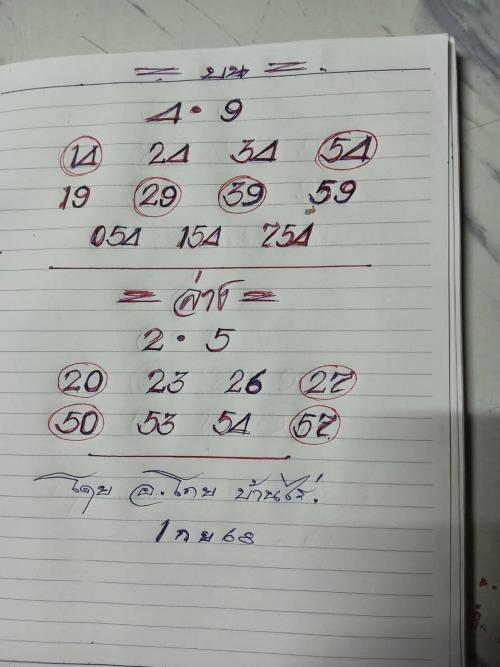 = บน =
4 • 9
14 24 34 54
19 29 39 59
054 154 754
= ล่าง =
2 • 5
20 23 26 27
50 53 54 57
โดย อ.โกย บ้านไร่.
1 กย 68